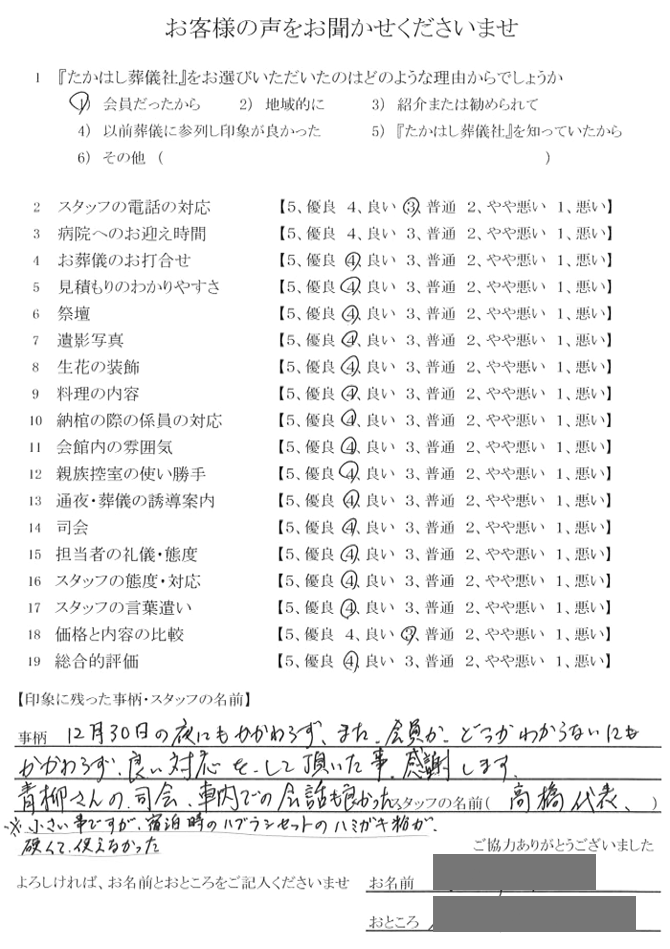 お客様の声をお聞かせくださいませ
1 『たかはし葬儀社』をお選びいただいたのはどのような理由からでしょうか
1) 会員だったから 2) 地域的に 3) 紹介または勧められて
4) 以前葬儀に参列し印象が良かった 5) 『たかはし葬儀社』を知っていたから
6) その他 ( )
2 スタッフの電話の対応 【5、優良 4、良い 3、普通 2、やや悪い 1、悪い】
3 病院へのお迎え時間 【5、優良 4、良い 3、普通 2、やや悪い 1、悪い】
4 お葬儀のお打合せ 【5、優良 4、良い 3、普通 2、やや悪い 1、悪い】
5 見積もりのわかりやすさ 【5、優良 4、良い 3、普通 2、やや悪い 1、悪い】
6 祭壇 【5、優良 4、良い 3、普通 2、やや悪い 1、悪い】
7 遺影写真 【5、優良 4、良い 3、普通 2、やや悪い 1、悪い】
8 生花の装飾 【5、優良 4、良い 3、普通 2、やや悪い 1、悪い】
9 料理の内容 【5、優良 4、良い 3、普通 2、やや悪い 1、悪い】
10 納棺の際の係員の対応 【5、優良 4、良い 3、普通 2、やや悪い 1、悪い】
11 会館内の雰囲気 【5、優良 4、良い 3、普通 2、やや悪い 1、悪い】
12 親族控室の使い勝手 【5、優良 4、良い 3、普通 2、やや悪い 1、悪い】
13 通夜・葬儀の誘導案内 【5、優良 4、良い 3、普通 2、やや悪い 1、悪い】
14 司会 【5、優良 4、良い 3、普通 2、やや悪い 1、悪い】
15 担当者の礼儀・態度 【5、優良 4、良い 3、普通 2、やや悪い 1、悪い】
16 スタッフの態度・対応 【5、優良 4、良い 3、普通 2、やや悪い 1、悪い】
17 スタッフの言葉遣い 【5、優良 4、良い 3、普通 2、やや悪い 1、悪い】
18 価格と内容の比較 【5、優良 4、良い 3、普通 2、やや悪い 1、悪い】
19 総合的評価 【5、優良 4、良い 3、普通 2、やや悪い 1、悪い】
【印象に残った事柄・スタッフの名前】
事柄 12月30日の夜にもかかわらず、また、会員か、どうかわからないにも
かかわらず、良い対応を、して頂いた事、感謝します。
青柳さんの、司会、車内での会話も良かった スタッフの名前( 高橋代表、 )
※小さい事ですが、宿泊時のハブラシセットのハミガキ粉が、
硬くて、使えなかった
ご協力ありがとうございました
よろしければ、お名前とおところをご記入くださいませ お名前
おところ